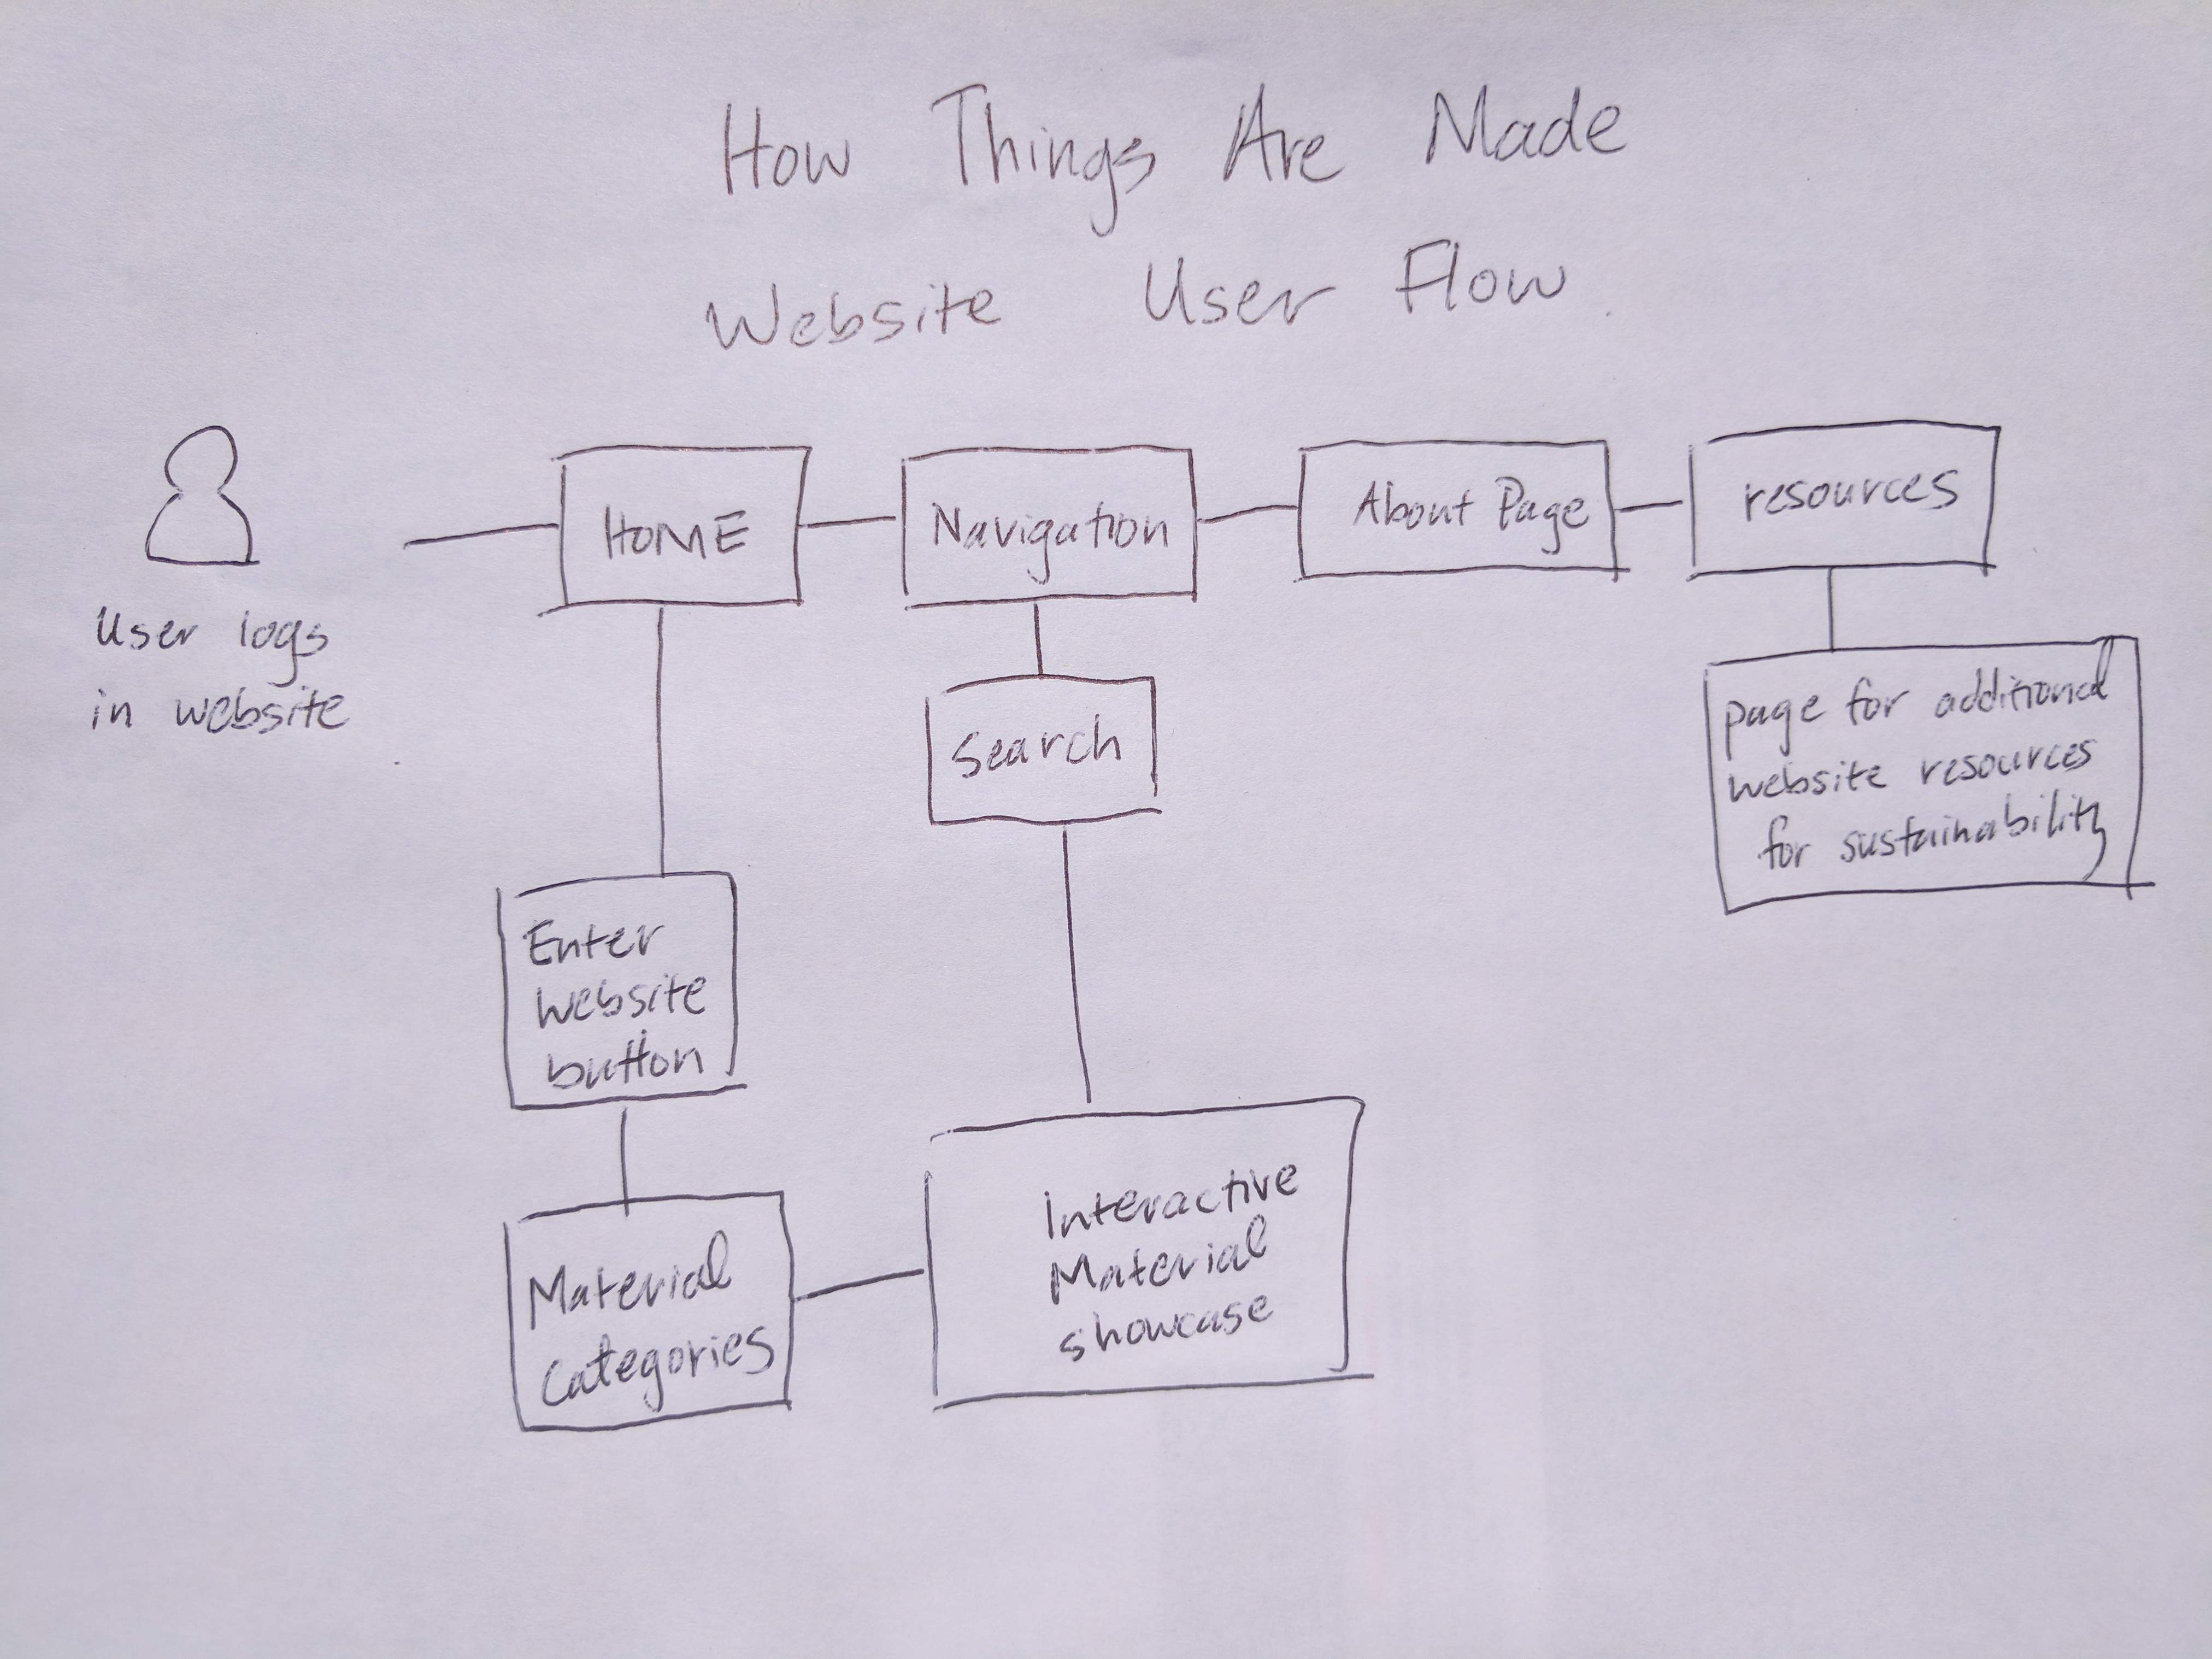 How Things Are Made
Website User Flow
User logs
in website
HOME
Navigation
About Page
resources
Search
page for additional
website resources
for sustainability
Enter
website
button
Material
Categories
Interactive
Material
showcase